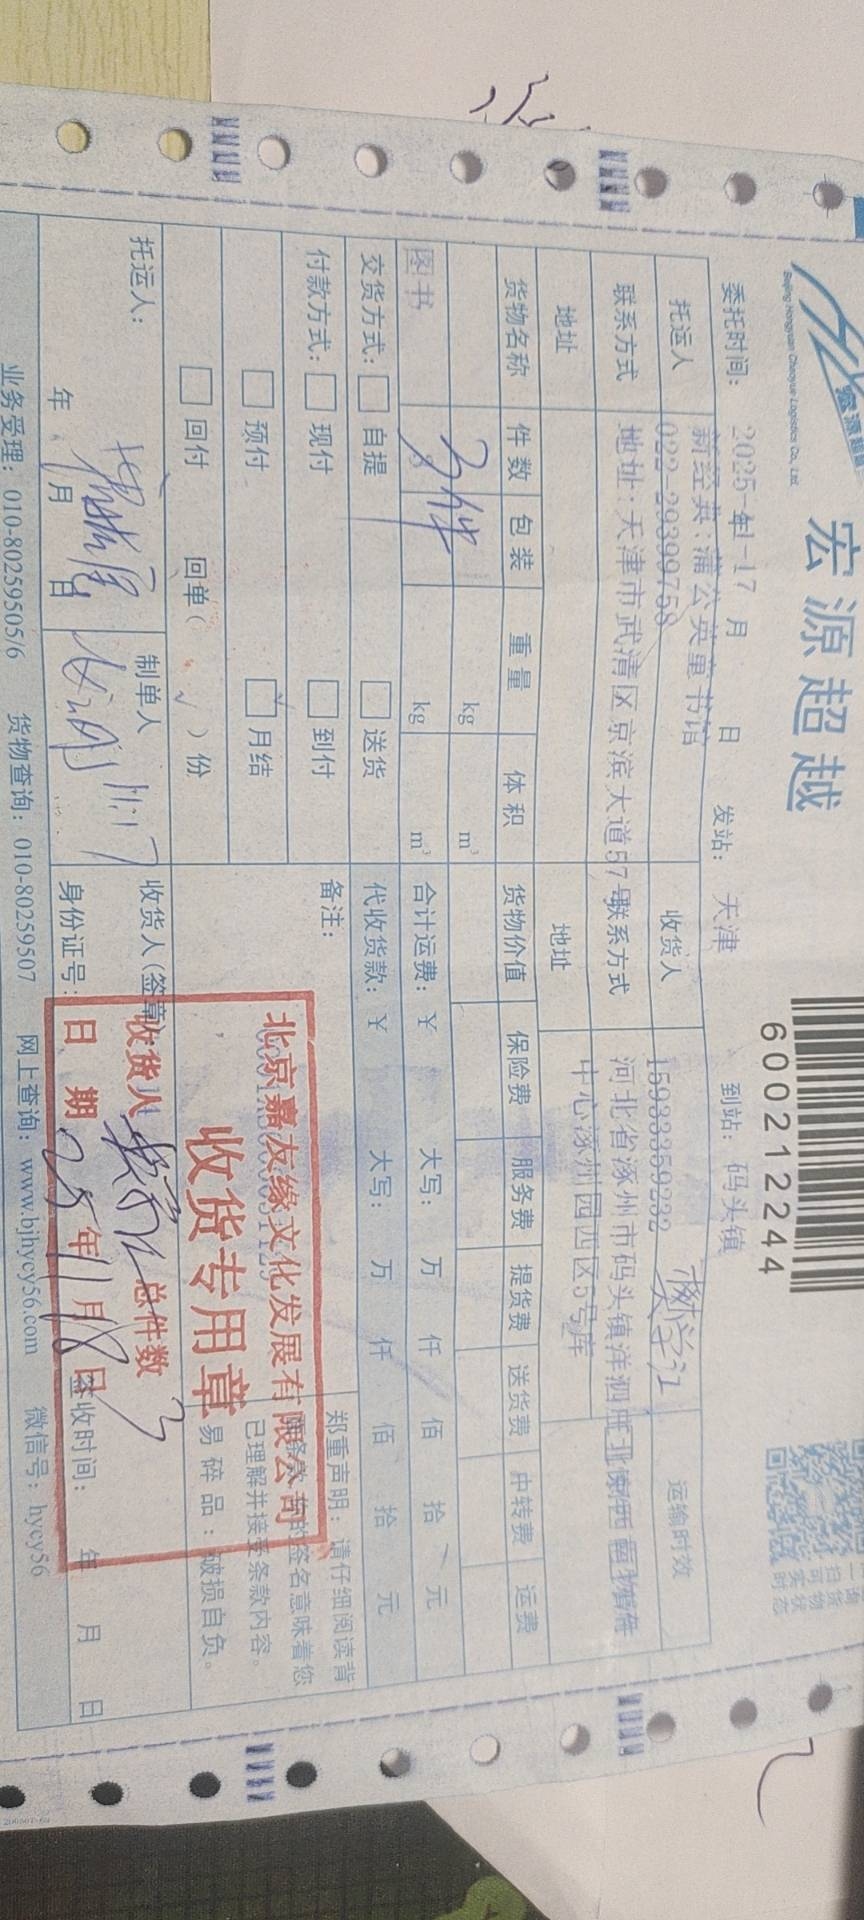 宏源超越
Beijing Hongyuan Chaoyue Logistics Co., Ltd.
600212244
委托时间： 2025-11-17 月 日 发站： 天津 到站： 码头镇
托运人 新经典：蒲公英童书馆 收货人 运输时效
联系方式 022-29399758 联系方式 15933359232
地址 地址：天津市武清区京滨大道57号 地址 河北省涿州市码头镇洋泗
中心涿州园西区5号库
货物名称 件数 包装 重量 体积 货物价值 保险费 服务费 提货费 送货费 中转费 运费
图书 3件 kg m³
kg m³ 合计运费：￥ 大写： 万 仟 佰 拾 元
交货方式： 自提 送货 代收货款：￥ 大写： 万 仟 佰 拾 元
付款方式： 现付 到付 备注：
预付 月结
回付 回单（ √ ）份
郑重声明：请仔细阅读背
的签名意味着您
已理解并接受条款内容。
易碎品：破损自负。
北京嘉友缘文化发展有限公司
收货专用章
收货人 总件数 3
日期 25年11月18日
托运人： 年 月 日
制单人 11.17
收货人(签章)
身份证号： 签收时间： 年 月 日
业务受理：010-80259505/6 货物查询：010-80259507 网上查询：www.bjhycy56.com 微信号：hycy56